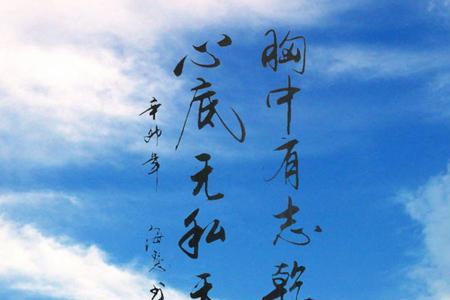 胸中有志乾
心底无私天
辛卯年
海 书